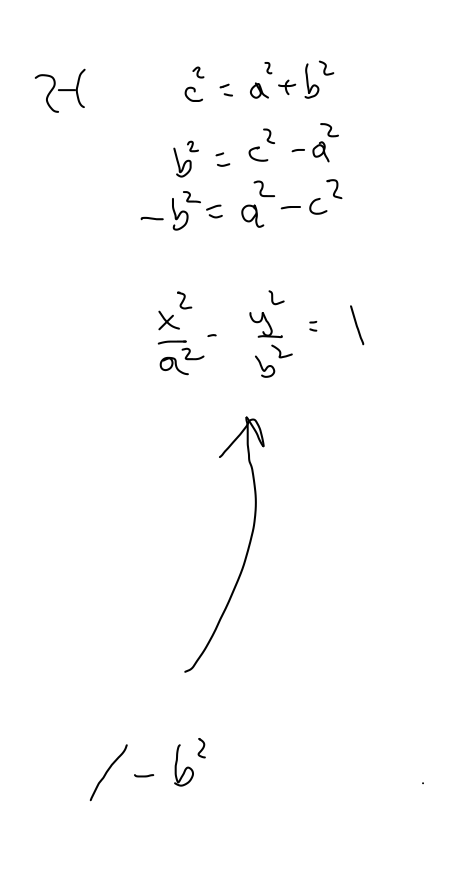 c² = a² + b²
b² = c² - a²
-b² = a² - c²
x²/a² - y²/b² = 1
/ - b²